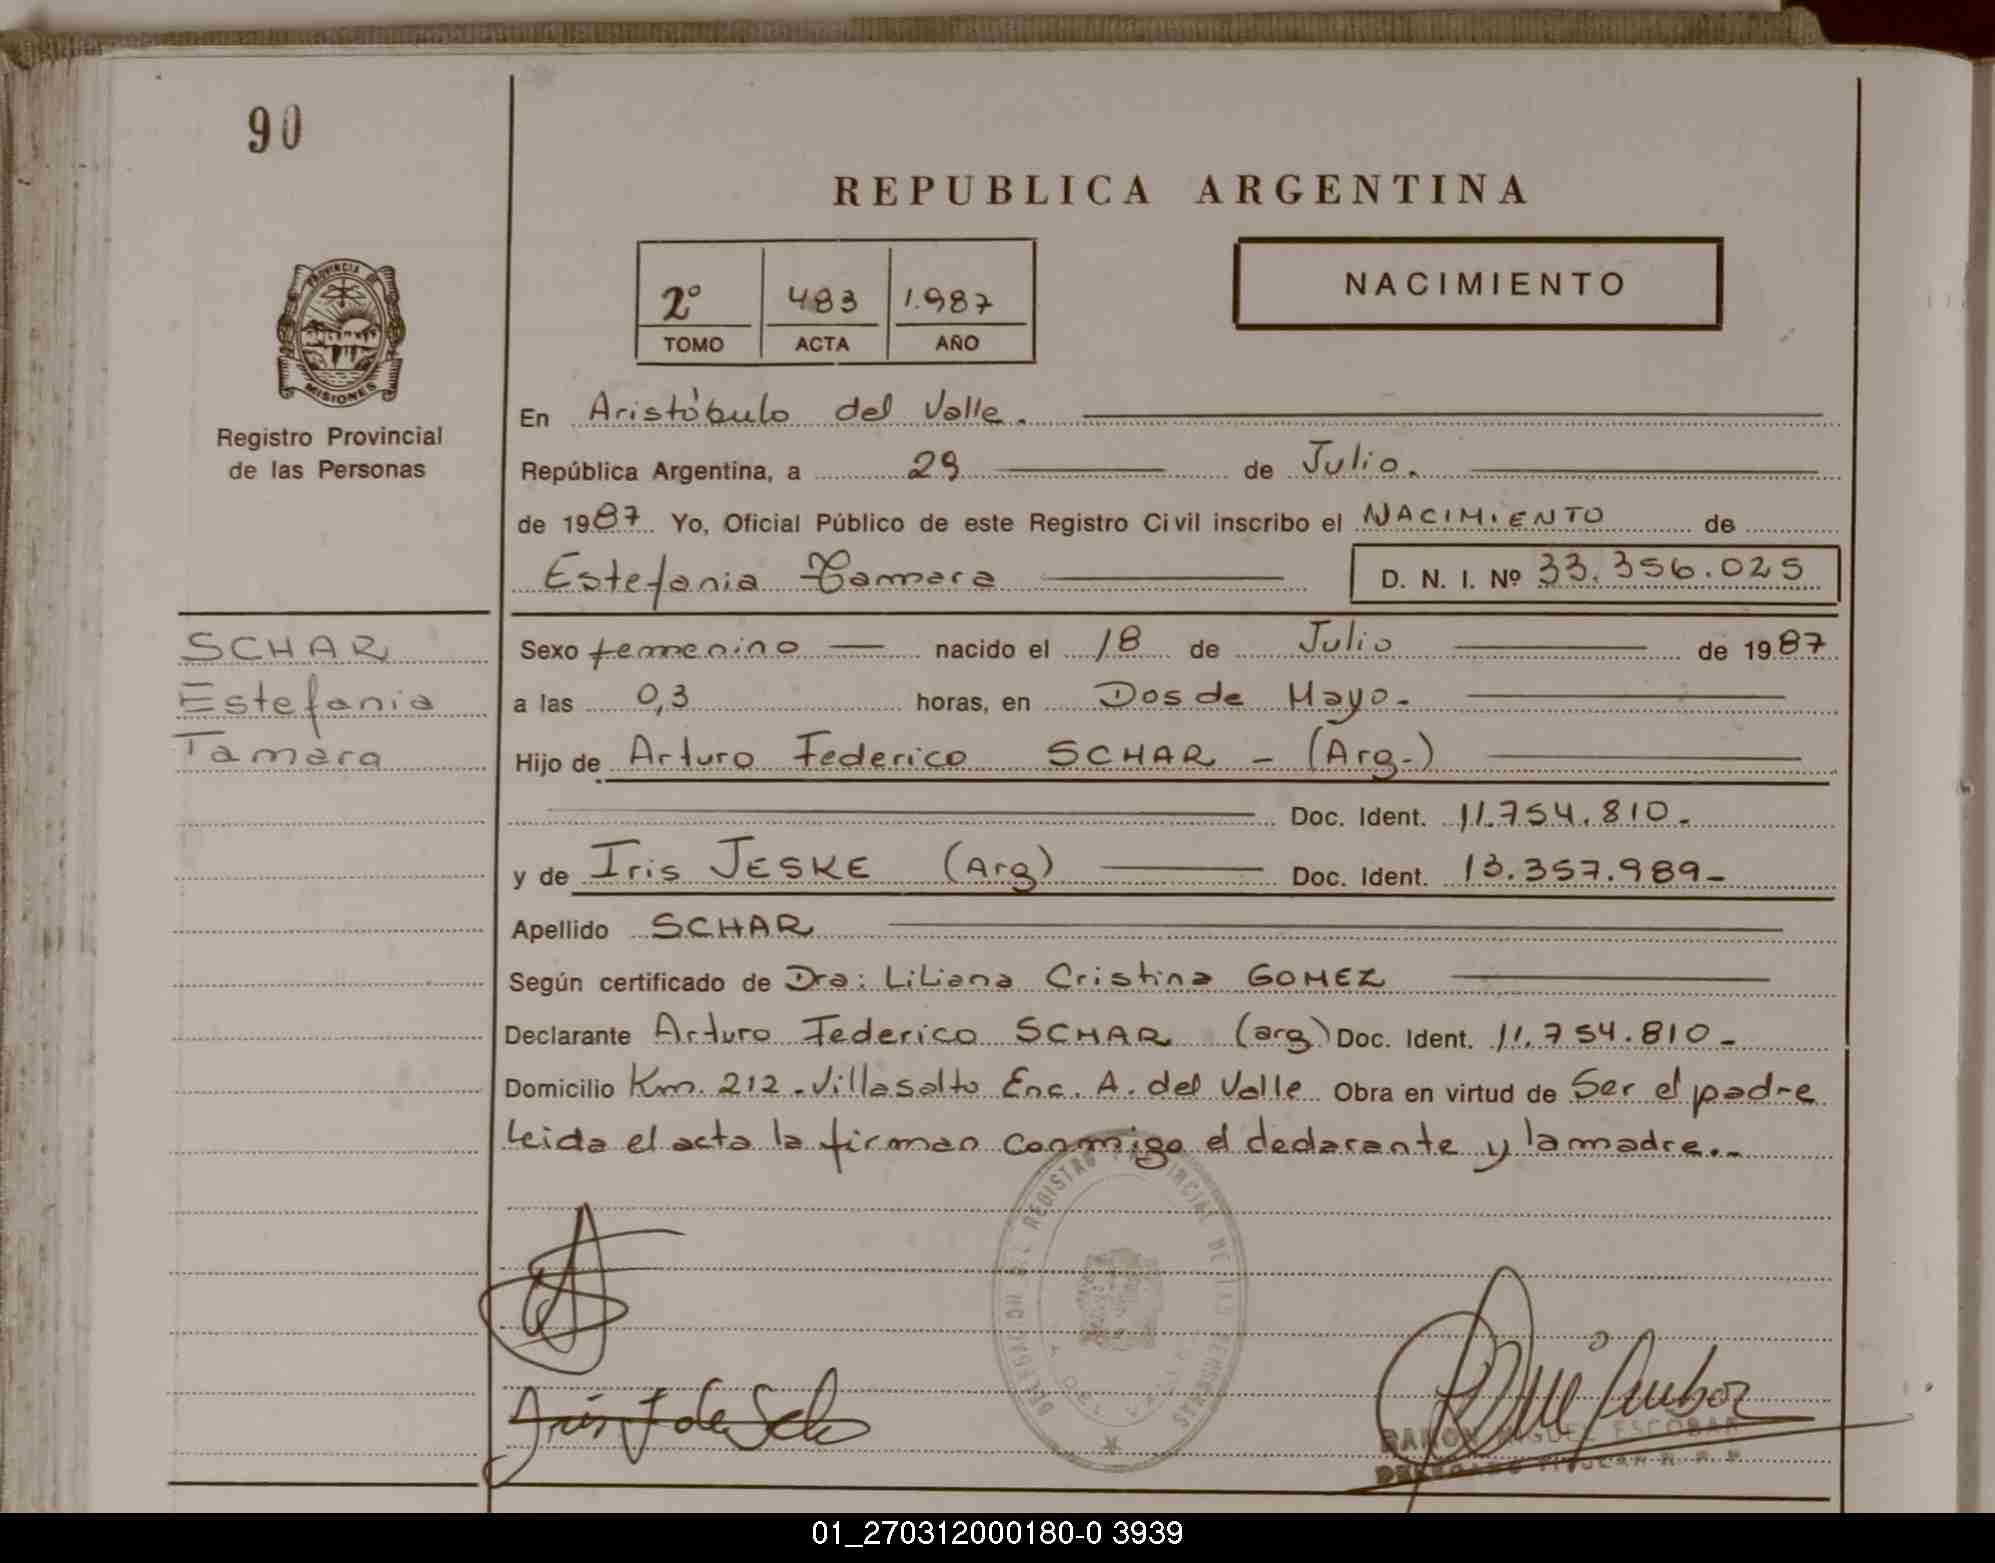 90
REPUBLICA ARGENTINA
PROVINCIA
MISIONES
Registro Provincial
de las Personas
2º 483 1.987
TOMO ACTA AÑO
NACIMIENTO
En Aristóbulo del Valle.
República Argentina, a 29 de Julio.
de 1987 Yo, Oficial Público de este Registro Civil inscribo el NACIMIENTO de
Estefania Tamara D. N. I. Nº 33.356.025
SCHAR
Estefania
Tamara
Sexo femenino nacido el 18 de Julio de 1987
a las 0,3 horas, en Dos de Mayo.
Hijo de Arturo Federico SCHAR - (Arg.)
Doc. Ident. 11.754.810.
y de Iris JESKE (Arg) Doc. Ident. 13.357.989-
Apellido SCHAR
Según certificado de Dra: Liliana Cristina GOMEZ
Declarante Arturo Federico SCHAR (arg) Doc. Ident. 11.754.810-
Domicilio Km. 212. Villasalto Enc. A. del Valle Obra en virtud de Ser el padre
leida el acta la firman conmigo el declarante y la madre..
REGISTRO PROVINCIAL DE LAS PERSONAS
RAMON MIGUEL ESCOBAR
DELEGADO TITULAR R. R. P.
01_270312000180-0 3939